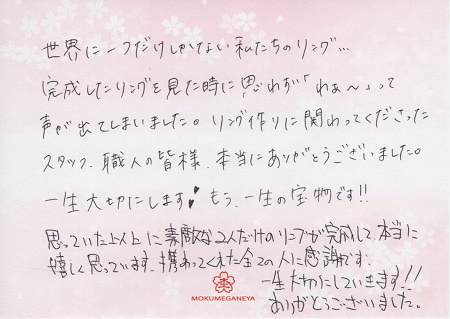 世界に一つだけしかない私たちのリング…
完成したリングを見た時に思わず「わぁ〜」って
声が出てしまいました。リング作りに関わってくださった
スタッフ、職人の皆様、本当にありがとうございました。
一生大切にします！もう、一生の宝物です!!
思っていた以上に素敵な2人だけのリングが完成して本当に
嬉しく思っています。携わってくれた全ての人に感謝です。
一生大切にしていきます!!
ありがとうございました。
MOKUMEGANEYA